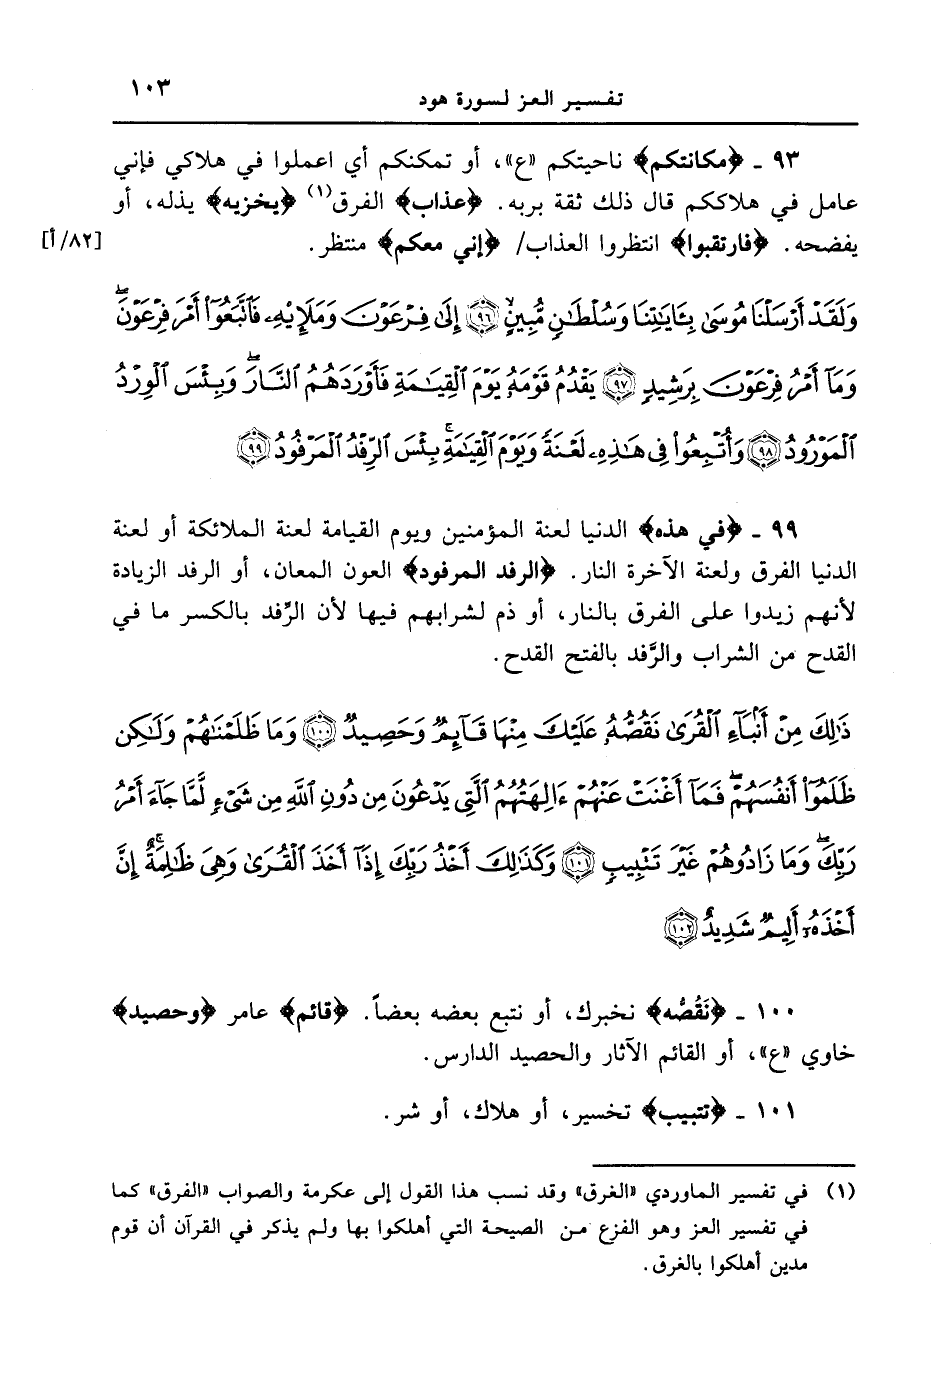 تفسير العز لسورة هود ١٠٣
٩٣ ـ ﴿مكانتكم﴾ ناحيتكم «ع»، أو تمكنكم أي اعملوا في هلاكي فإني
عامل في هلاككم قال ذلك ثقة بربه. ﴿عذاب﴾ الفرق(١) ﴿يخزيه﴾ يذله، أو
يفضحه. ﴿فارتقبوا﴾ انتظروا العذاب/ ﴿إني معكم﴾ منتظر. [٨٢/أ]
وَلَقَدْ أَرْسَلْنَا مُوسَىٰ بِـَٔايَـٰتِنَا وَسُلْطَـٰنٍ مُّبِينٍ ﴿٩٦﴾ إِلَىٰ فِرْعَوْنَ وَمَلَإِي۟هِۦ فَٱتَّبَعُوٓا۟ أَمْرَ فِرْعَوْنَ ۖ
وَمَآ أَمْرُ فِرْعَوْنَ بِرَشِيدٍ ﴿٩٧﴾ يَقْدُمُ قَوْمَهُۥ يَوْمَ ٱلْقِيَـٰمَةِ فَأَوْرَدَهُمُ ٱلنَّارَ ۖ وَبِئْسَ ٱلْوِرْدُ
ٱلْمَوْرُودُ ﴿٩٨﴾ وَأُتْبِعُوا۟ فِى هَـٰذِهِۦ لَعْنَةً وَيَوْمَ ٱلْقِيَـٰمَةِ ۚ بِئْسَ ٱلرِّفْدُ ٱلْمَرْفُودُ ﴿٩٩﴾
٩٩ ـ ﴿في هذه﴾ الدنيا لعنة المؤمنين ويوم القيامة لعنة الملائكة أو لعنة
الدنيا الفرق ولعنة الآخرة النار. ﴿الرفد المرفود﴾ العون المعان، أو الرفد الزيادة
لأنهم زيدوا على الفرق بالنار، أو ذم لشرابهم فيها لأن الرِّفد بالكسر ما في
القدح من الشراب والرَّفد بالفتح القدح.
ذَٰلِكَ مِنْ أَنۢبَآءِ ٱلْقُرَىٰ نَقُصُّهُۥ عَلَيْكَ مِنْهَا قَآئِمٌ وَحَصِيدٌ ﴿١٠٠﴾ وَمَا ظَلَمْنَـٰهُمْ وَلَـٰكِن
ظَلَمُوٓا۟ أَنفُسَهُمْ ۖ فَمَآ أَغْنَتْ عَنْهُمْ ءَالِهَتُهُمُ ٱلَّتِى يَدْعُونَ مِن دُونِ ٱللَّهِ مِن شَىْءٍ لَّمَّا جَآءَ أَمْرُ
رَبِّكَ ۖ وَمَا زَادُوهُمْ غَيْرَ تَتْبِيبٍ ﴿١٠١﴾ وَكَذَٰلِكَ أَخْذُ رَبِّكَ إِذَآ أَخَذَ ٱلْقُرَىٰ وَهِىَ ظَـٰلِمَةٌ ۚ إِنَّ
أَخْذَهُۥٓ أَلِيمٌ شَدِيدٌ ﴿١٠٢﴾
١٠٠ ـ ﴿نَقُصُّه﴾ نخبرك، أو نتبع بعضه بعضاً. ﴿قائم﴾ عامر ﴿وحصيد﴾
خاوي «ع»، أو القائم الآثار والحصيد الدارس.
١٠١ ـ ﴿تتبيب﴾ تخسير، أو هلاك، أو شر.
(١) في تفسير الماوردي «الغرق» وقد نسب هذا القول إلى عكرمة والصواب «الفرق» كما
في تفسير العز وهو الفزع من الصيحة التي أهلكوا بها ولم يذكر في القرآن أن قوم
مدين أهلكوا بالغرق.